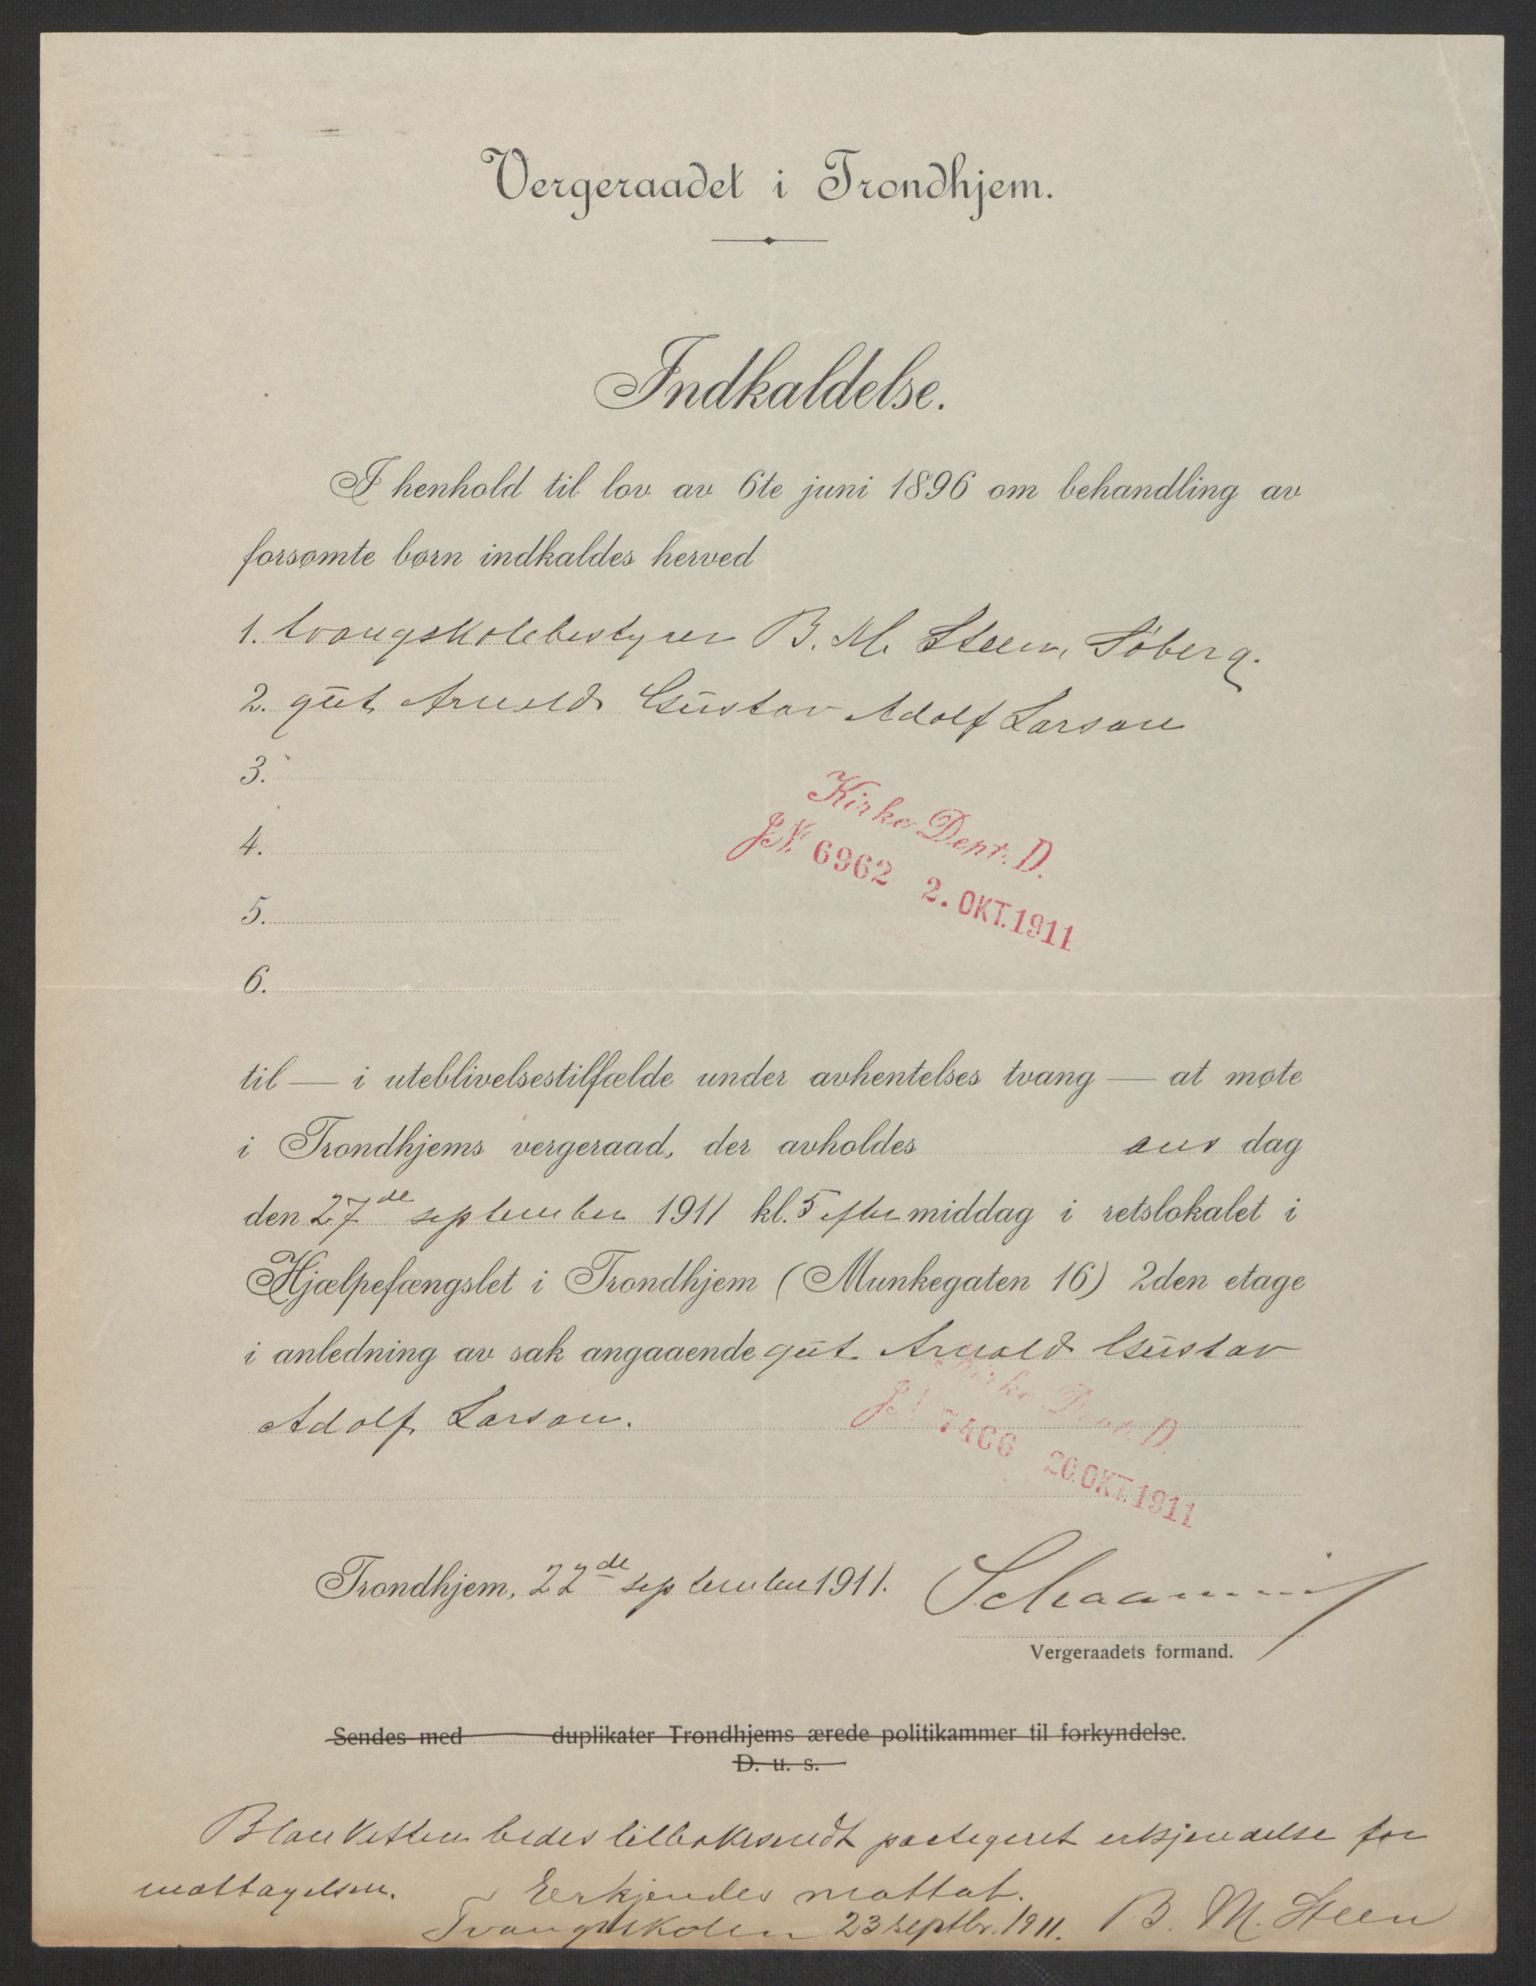 Vergeraadet i Trondhjem.
Indkaldelse.
I henhold til lov av 6te juni 1896 om behandling av
forsømte børn indkaldes herved
1. tvangskolebestyrer B. M. Steen, Søberg.
2. gut Arnold Gustav Adolf Larsen
3.
4.
5.
6.
Kirke Dept. D.
J.N. 6962 2. OKT. 1911
til — i uteblivelsestilfælde under avhentelses tvang — at møte
i Trondhjems vergeraad, der avholdes ons dag
den 27de september 1911 kl. 5 efter middag i retslokalet i
Hjælpefængslet i Trondhjem (Munkegaten 16) 2den etage
i anledning av sak angaaende gut Arnold Gustav
Adolf Larsen.
Kirke Dept. D.
20. OKT. 1911
Trondhjem, 22de september 1911. Schaanning
Vergeraadets formand.
Sendes med duplikater Trondhjems ærede politikammer til forkyndelse.
D. u. s.
Blanketten bedes tilbakesendt paategnet erkjendelse for
mottagelsen. Erkjendes mottat.
Tvangsskolen 23 septbr. 1911. B. M. Steen